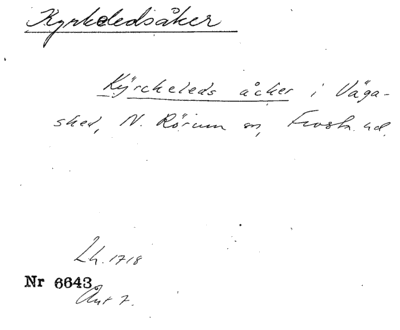 Kyrkeledsåker
Kÿrckeleds åcker i Våga-
shed, N. Rörum sn, Frosta hd.
Lh. 1718
Nr 6643
Ånt 7.